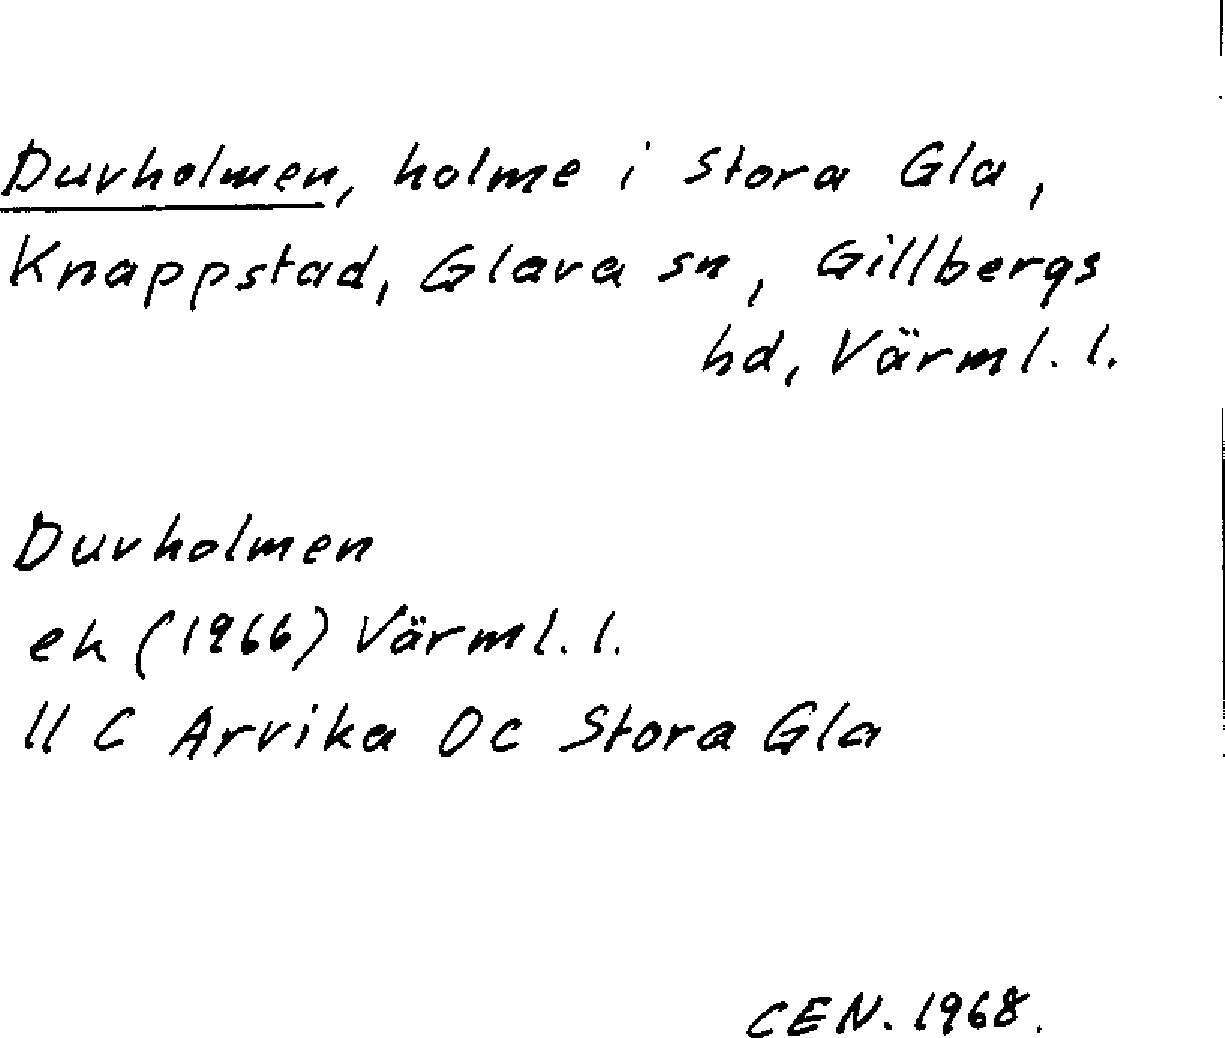 Duvholmen, holme i Stora Gla,
Knappstad, Glava sn, Gillbergs
hd, Värml. l.
Duvholmen
ek (1966) Värml. l.
11 C Arvika Oc Stora Gla
CEN. 1968.